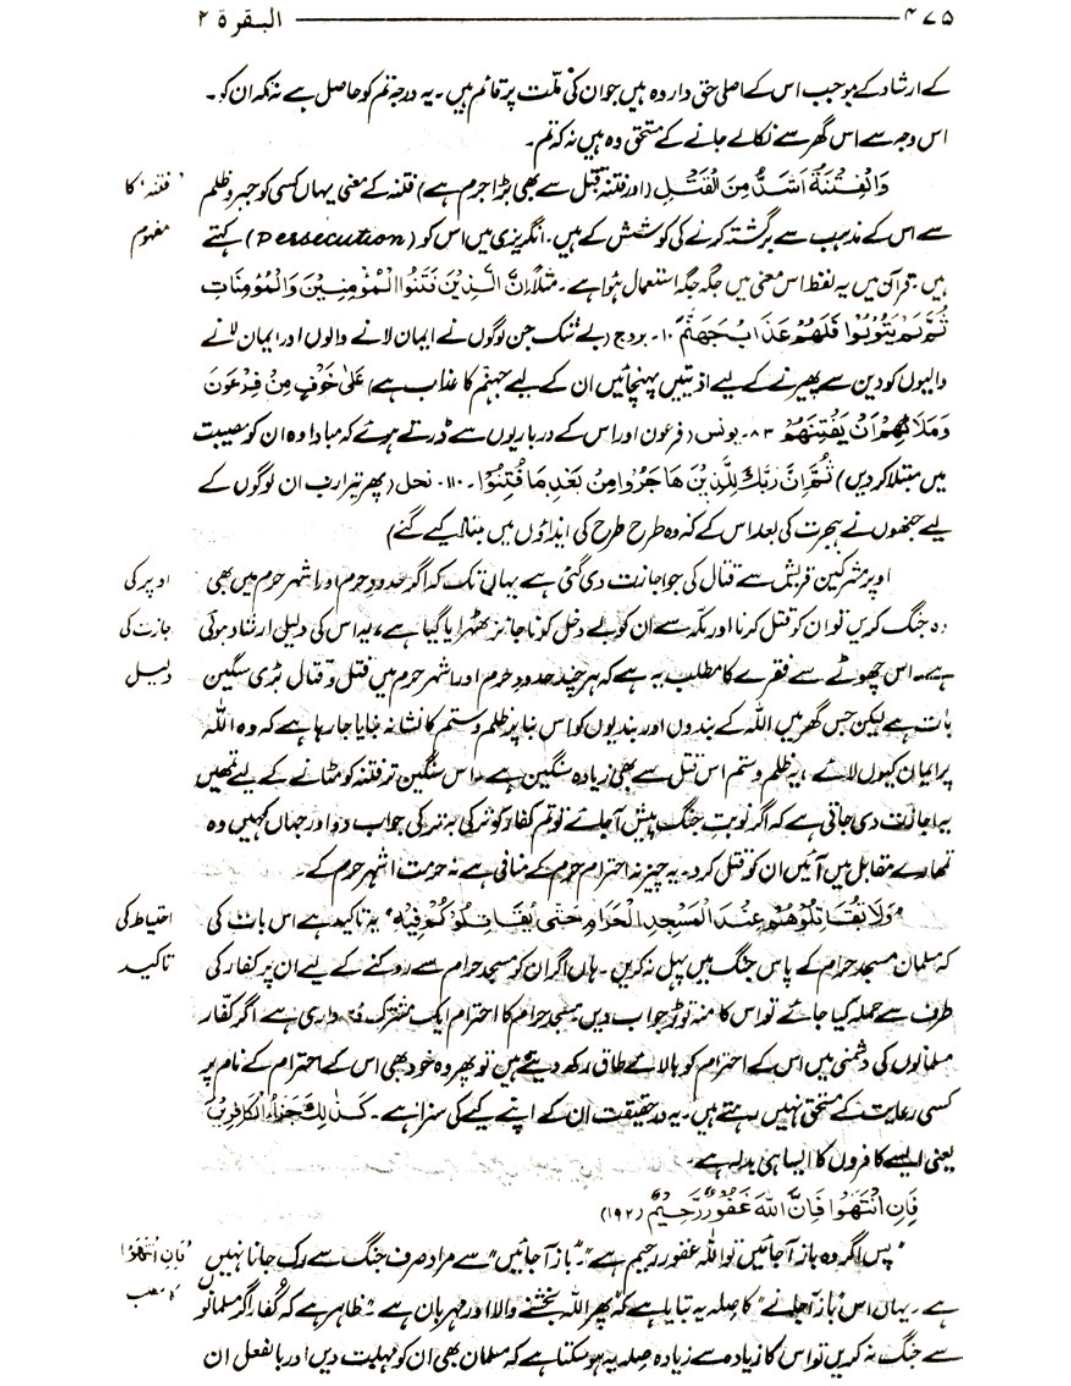 ۴۷۵ البقرۃ ۲
کے ارشاد کے موجب اس کے اصلی حق دار وہ ہیں جو ان کی ملّت پر قائم ہیں۔ یہ درجہ تم کو حاصل ہے نہ کہ ان کو۔
اس وجہ سے اس گھر سے نکالے جانے کے مستحق وہ ہیں نہ کہ تم۔
وَالْفِتْنَةُ اَشَدُّ مِنَ الْقَتْلِ (اور فتنہ قتل سے بھی بڑا جرم ہے) فتنہ کے معنی یہاں کسی کو جبر و ظلم
'فتنہ' کا
سے اس کے مذہب سے برگشتہ کرنے کی کوشش کے ہیں۔ انگریزی میں اس کو (Persecution) کہتے
مفہوم
ہیں۔ قرآن میں یہ لفظ اس معنی میں جگہ جگہ استعمال ہوا ہے۔ مثلاً اِنَّ الَّذِيْنَ فَتَنُوا الْمُؤْمِنِيْنَ وَالْمُؤْمِنَاتِ
ثُمَّ لَمْ يَتُوْبُوْا فَلَهُمْ عَذَابُ جَهَنَّمَ ۱۰۔ بروج (بے شک جن لوگوں نے ایمان لانے والوں اور ایمان لانے
والیوں کو دین سے پھیرنے کے لیے اذیتیں پہنچائیں ان کے لیے جہنم کا عذاب ہے) عَلٰى خَوْفٍ مِنْ فِرْعَوْنَ
وَمَلَائِهِمْ اَنْ يَفْتِنَهُمْ ۸۳۔ یونس (فرعون اور اس کے درباریوں سے ڈرتے ہوئے کہ مبادا وہ ان کو مصیبت
میں مبتلا کر دیں) ثُمَّ اِنَّ رَبَّكَ لِلَّذِيْنَ هَاجَرُوْا مِنْ بَعْدِ مَا فُتِنُوْا۔ ۱۱۰۔ نحل (پھر تیرا رب ان لوگوں کے
لیے جنھوں نے ہجرت کی بعد اس کے کہ وہ طرح طرح کی ایذاؤں میں مبتلا کیے گئے)
اوپر مشرکین قریش سے قتال کی جو اجازت دی گئی ہے یہاں تک کہ اگر حدودِ حرم اور اشہر حرم میں بھی
اوپر کی
وہ جنگ کریں تو ان کو قتل کرنا اور مکّہ سے ان کو بے دخل کرنا جائز ٹھہرایا گیا ہے، یہ اس کی دلیل ارشاد ہوئی
اجازت کی
ہے۔ اس چھوٹے سے فقرے کا مطلب یہ ہے کہ ہر چند حدودِ حرم اور اشہر حرم میں قتل و قتال بڑی سنگین
دلیل
بات ہے لیکن جس گھر میں اللہ کے بندوں اور بندیوں کو اس بنا پر ظلم و ستم کا نشانہ بنایا جا رہا ہے کہ وہ اللہ
پر ایمان کیوں لائے، یہ ظلم و ستم اس قتل سے بھی زیادہ سنگین ہے۔ اس سنگین تر فتنہ کو مٹانے کے لیے تمھیں
یہ اجازت دی جاتی ہے کہ اگر نوبتِ جنگ پیش آجائے تو تم کفار کو ترکی بہ ترکی جواب دو اور جہاں کہیں وہ
تمھارے مقابل میں آئیں ان کو قتل کرو۔ یہ چیز نہ احترام حرم کے منافی ہے نہ حرمت اشہر حرم کے۔
'وَلَا تُقَاتِلُوْهُمْ عِنْدَ الْمَسْجِدِ الْحَرَامِ حَتّٰى يُقَاتِلُوْكُمْ فِيْهِ' یہ تاکید ہے اس بات کی
احتیاط کی
کہ مسلمان مسجد حرام کے پاس جنگ میں پہل نہ کریں۔ ہاں اگر ان کو مسجد حرام سے روکنے کے لیے ان پر کفار کی
تاکید
طرف سے حملہ کیا جائے تو اس کا منہ توڑ جواب دیں۔ مسجد حرام کا احترام ایک مشترک ذمہ داری ہے اگر کفّار
مسلمانوں کی دشمنی میں اس کے احترام کو بالائے طاق رکھ دیتے ہیں تو پھر وہ خود بھی اس کے احترام کے نام پر
کسی رعایت کے مستحق نہیں رہتے ہیں۔ یہ درحقیقت ان کے اپنے کیے کی سزا ہے۔ كَذٰلِكَ جَزَآءُ الْكَافِرِيْنَ
یعنی ایسے کافروں کا ایسا ہی بدلہ ہے۔
فَاِنِ انْتَهَوْا فَاِنَّ اللّٰهَ غَفُوْرٌ رَّحِيْمٌ (۱۹۲)
'پس اگر وہ باز آجائیں تو اللہ غفور رحیم ہے'۔ "باز آجائیں" سے مراد صرف جنگ سے رک جانا نہیں
'فَاِنِ انْتَهَوْا'
ہے۔ یہاں اس 'باز آجانے' کا صلہ یہ بتایا ہے کہ 'پھر اللہ بخشنے والا اور مہربان ہے'۔ ظاہر ہے کہ کُفّار اگر مسلمانوں
کا مطلب
سے جنگ نہ کریں تو اس کا زیادہ سے زیادہ صلہ یہ ہو سکتا ہے کہ مسلمان بھی ان کو مہلت دیں اور بالفعل ان